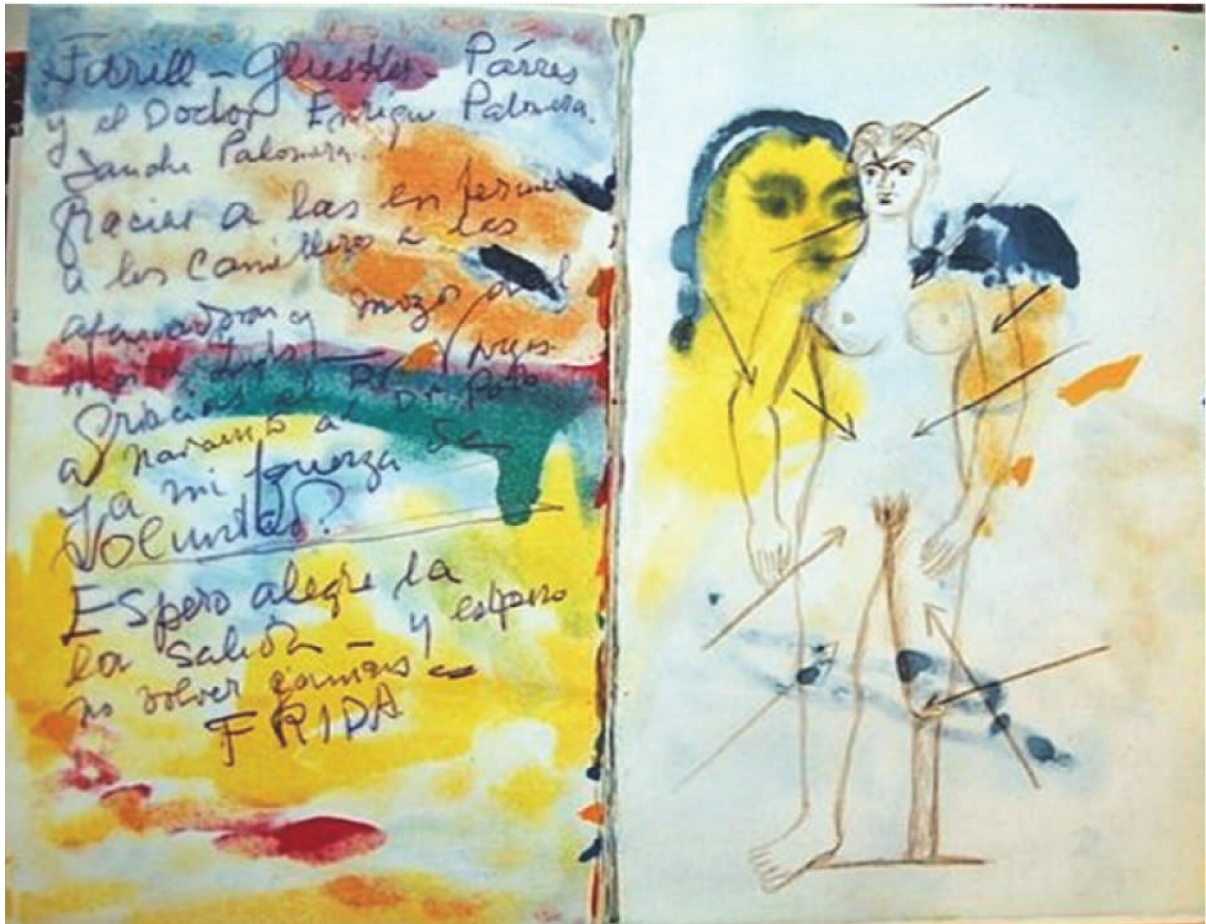 Farill - Glusker - Párres
y el Doctor Enrique Palomera.
Sanche Palomera.
Gracias a las enfermeras
a los Camilleros a las
afanadoras y mozos del
Gracias al Dr
a Navarro a Dr. Polo
y a mi fuerza de
Voluntad?
Espero alegre la
la salida - y espero
no volver jamas -
FRIDA